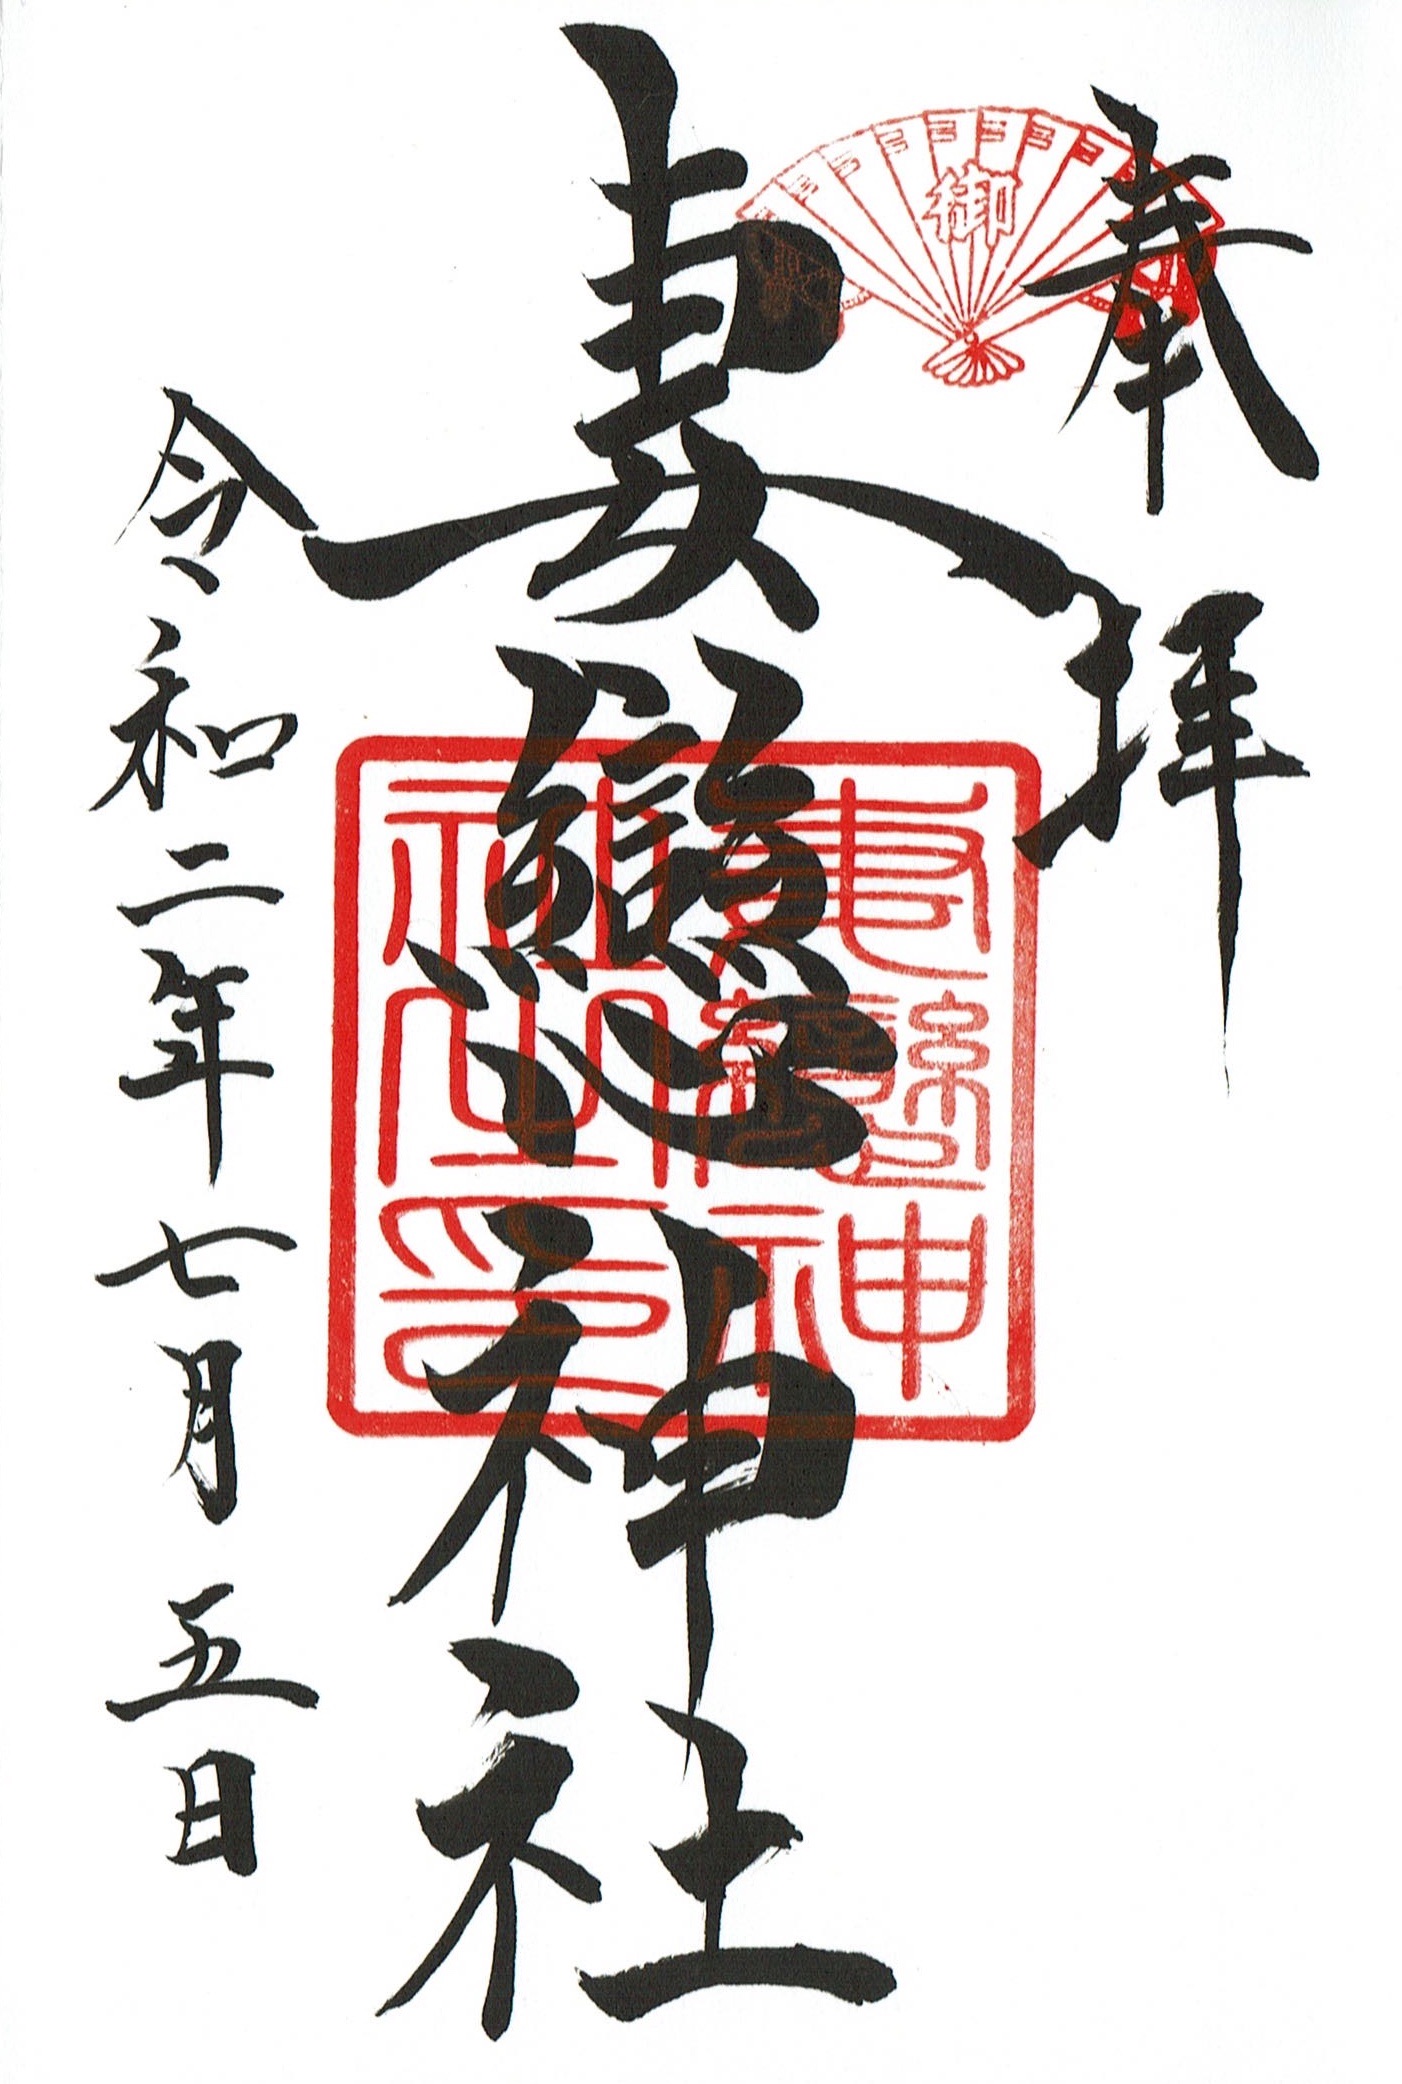 奉拝
御
妻戀神社
妻戀神社之印
令和二年七月五日